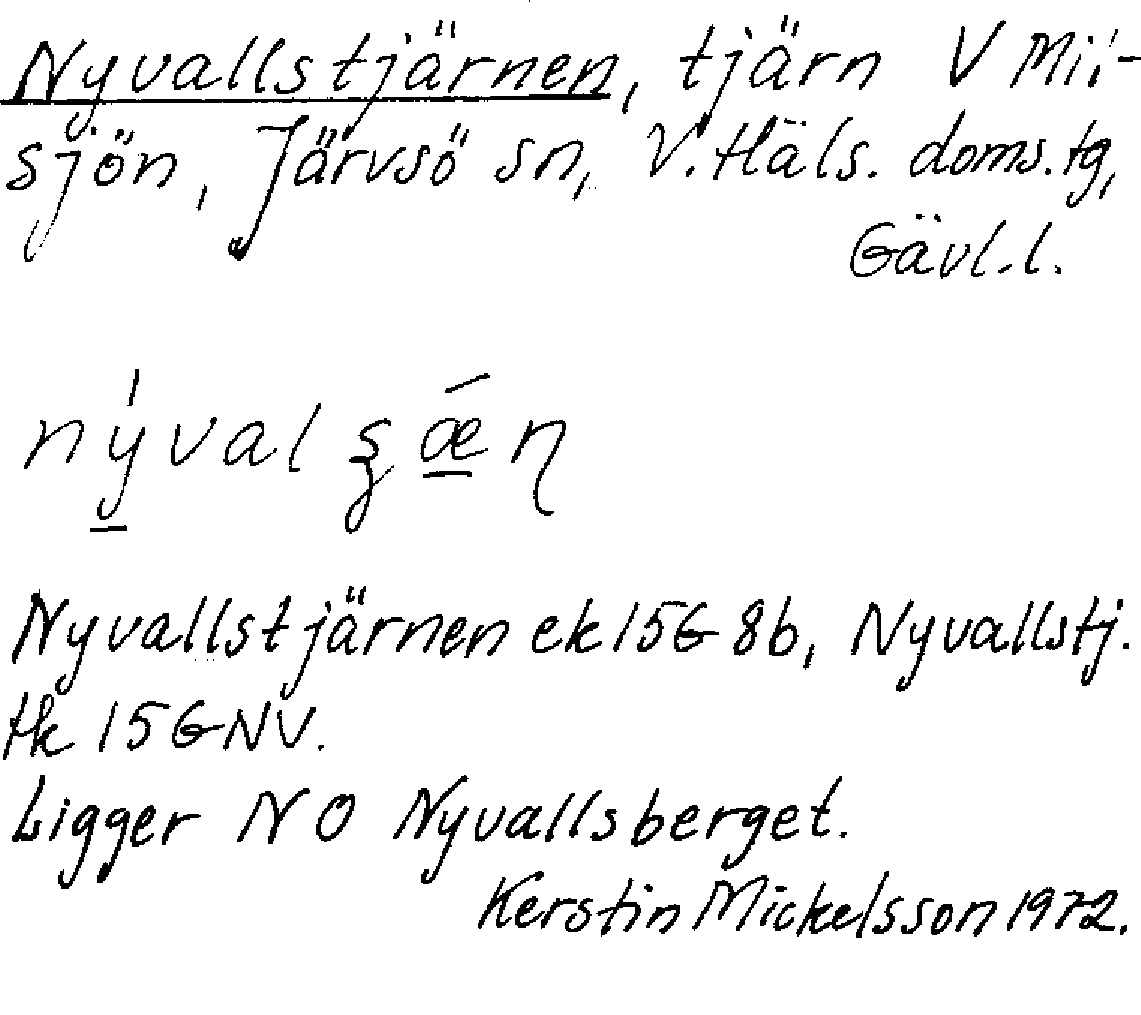 Nyvallstjärnen, tjärn V Mii-
sjön, Järvsö sn, V. Häls. doms.tg,
Gävl.l.
nývalʂǽɳ
Nyvallstjärnen ek 15G 8b, Nyvallstj.
tk 15G NV.
Ligger NO Nyvallsberget.
Kerstin Mickelsson 1972.